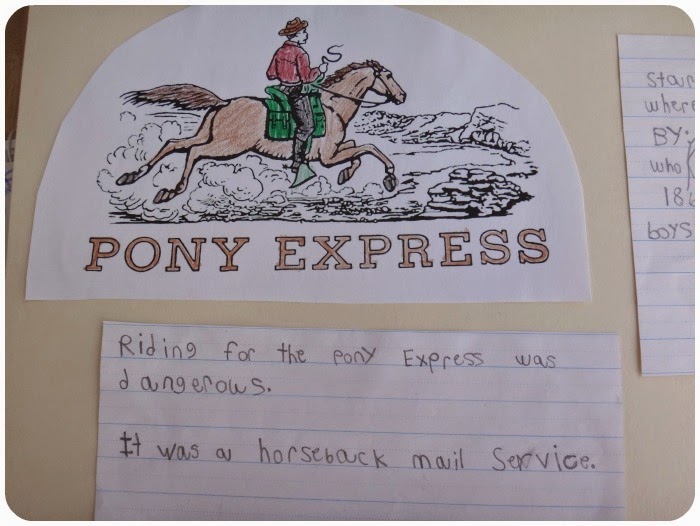 PONY EXPRESS
Riding for the pony Express was
dangerous.
It was a horseback mail Service.
where
BY
who
18
boys